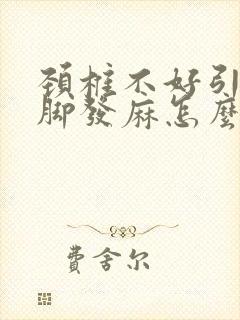 頚椎不好引
脚發麻怎麼
費舍尔